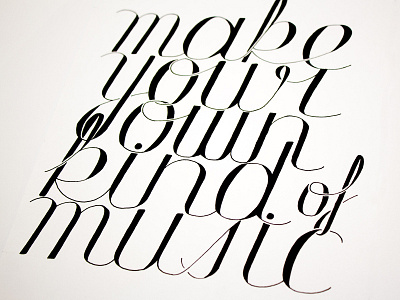 make
your
own
kind of
music